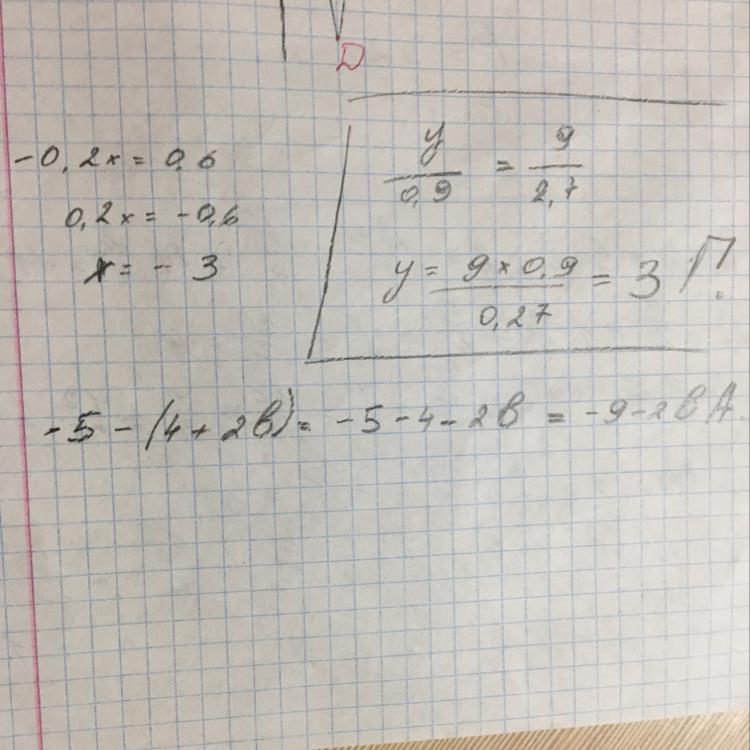 D
-0,2x = 0,6
0,2x = -0,6
x = - 3
y/0,9 = 9/2,7
y = 9 × 0,9/0,27 = 3 Г.
-5 - (4 + 2в) = -5 - 4 - 2в = -9 - 2в А.